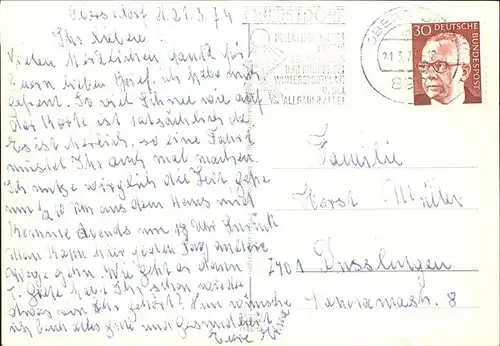 Oberstdorf d. 21.3.74
Ihr Lieben.
Vielen Herzlichen Dank für
Euern lieben Brief, ich habe mich
gefreut. So viel Schnee wie auf
der Karte ist tatsächlich da
Es ist Herrlich, so eine Fahrt
müsstet Ihr auch mal machen.
Ich nutze wirklich die Zeit gehe
um ½ 10 Uhr aus dem Haus und
komme Abends um 18 Uhr zurück
Man kann hier jeden Tag andere
Wege gehn. Wie geht es dann
Habt Ihr schon wieder
etwas von Ihr gehört? Nun wünsche
ich Euch alles gute und Gesundheit
Eure
OBERSTDORF
WINTERSPORTPLATZ
ALLGÄUER ALPEN
21.3.
30 DEUTSCHE BUNDESPOST
Familie
Horst Müller
7401 Dusslingen
8